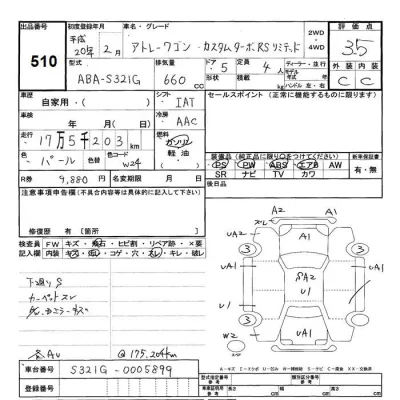 出品番号 510
初度登録年月 平成 20年 2月
車名・グレード アトレーワゴン・カスタムターボRSリミテッド
2WD
4WD
評価点 3.5
型式 ABA-S321G
排気量 660 cc
ドア 5
形状
定員 4人
積載 kg
ディーラー・並行
モデル年式
ハンドル 左・右
外装 C
内装 C
車歴 自家用・( )
シフト IAT
セールスポイント(正常に機能するものに限ります)
車検 年 月
冷房 AAC
走行 17万5千203km
燃料 ガソリン 軽油
色 パール ( )
色コード W24
装備品(純正品に限り○をつけてください)
PS PW ABS エアB AW
SR ナビ TV カワ
新車保証書 有・無
R券 9,880円
名変期限 月 日
後日品
注意事項申告欄(不具合内容等は具体的に記入して下さい)
修復歴 有〔箇所 〕
検査員記入欄
FW キズ・飛石・ヒビ割・リペア跡・×要
内装 キズ・汚レ・コゲ・穴・スレ・キレ・破レ
下廻りS
カーペットスレ
@175,204km
車台番号 S321G-0005899
登録番号
A2
A1
スレ
UA2
A1
3
3
UA1
UA1
SA2
U1
U1
U1
3
3
W2
UA1
スペア
A-キズ
型式指定番号 参考
類別区分番号 参考
長さ cm
幅 cm
高さ cm